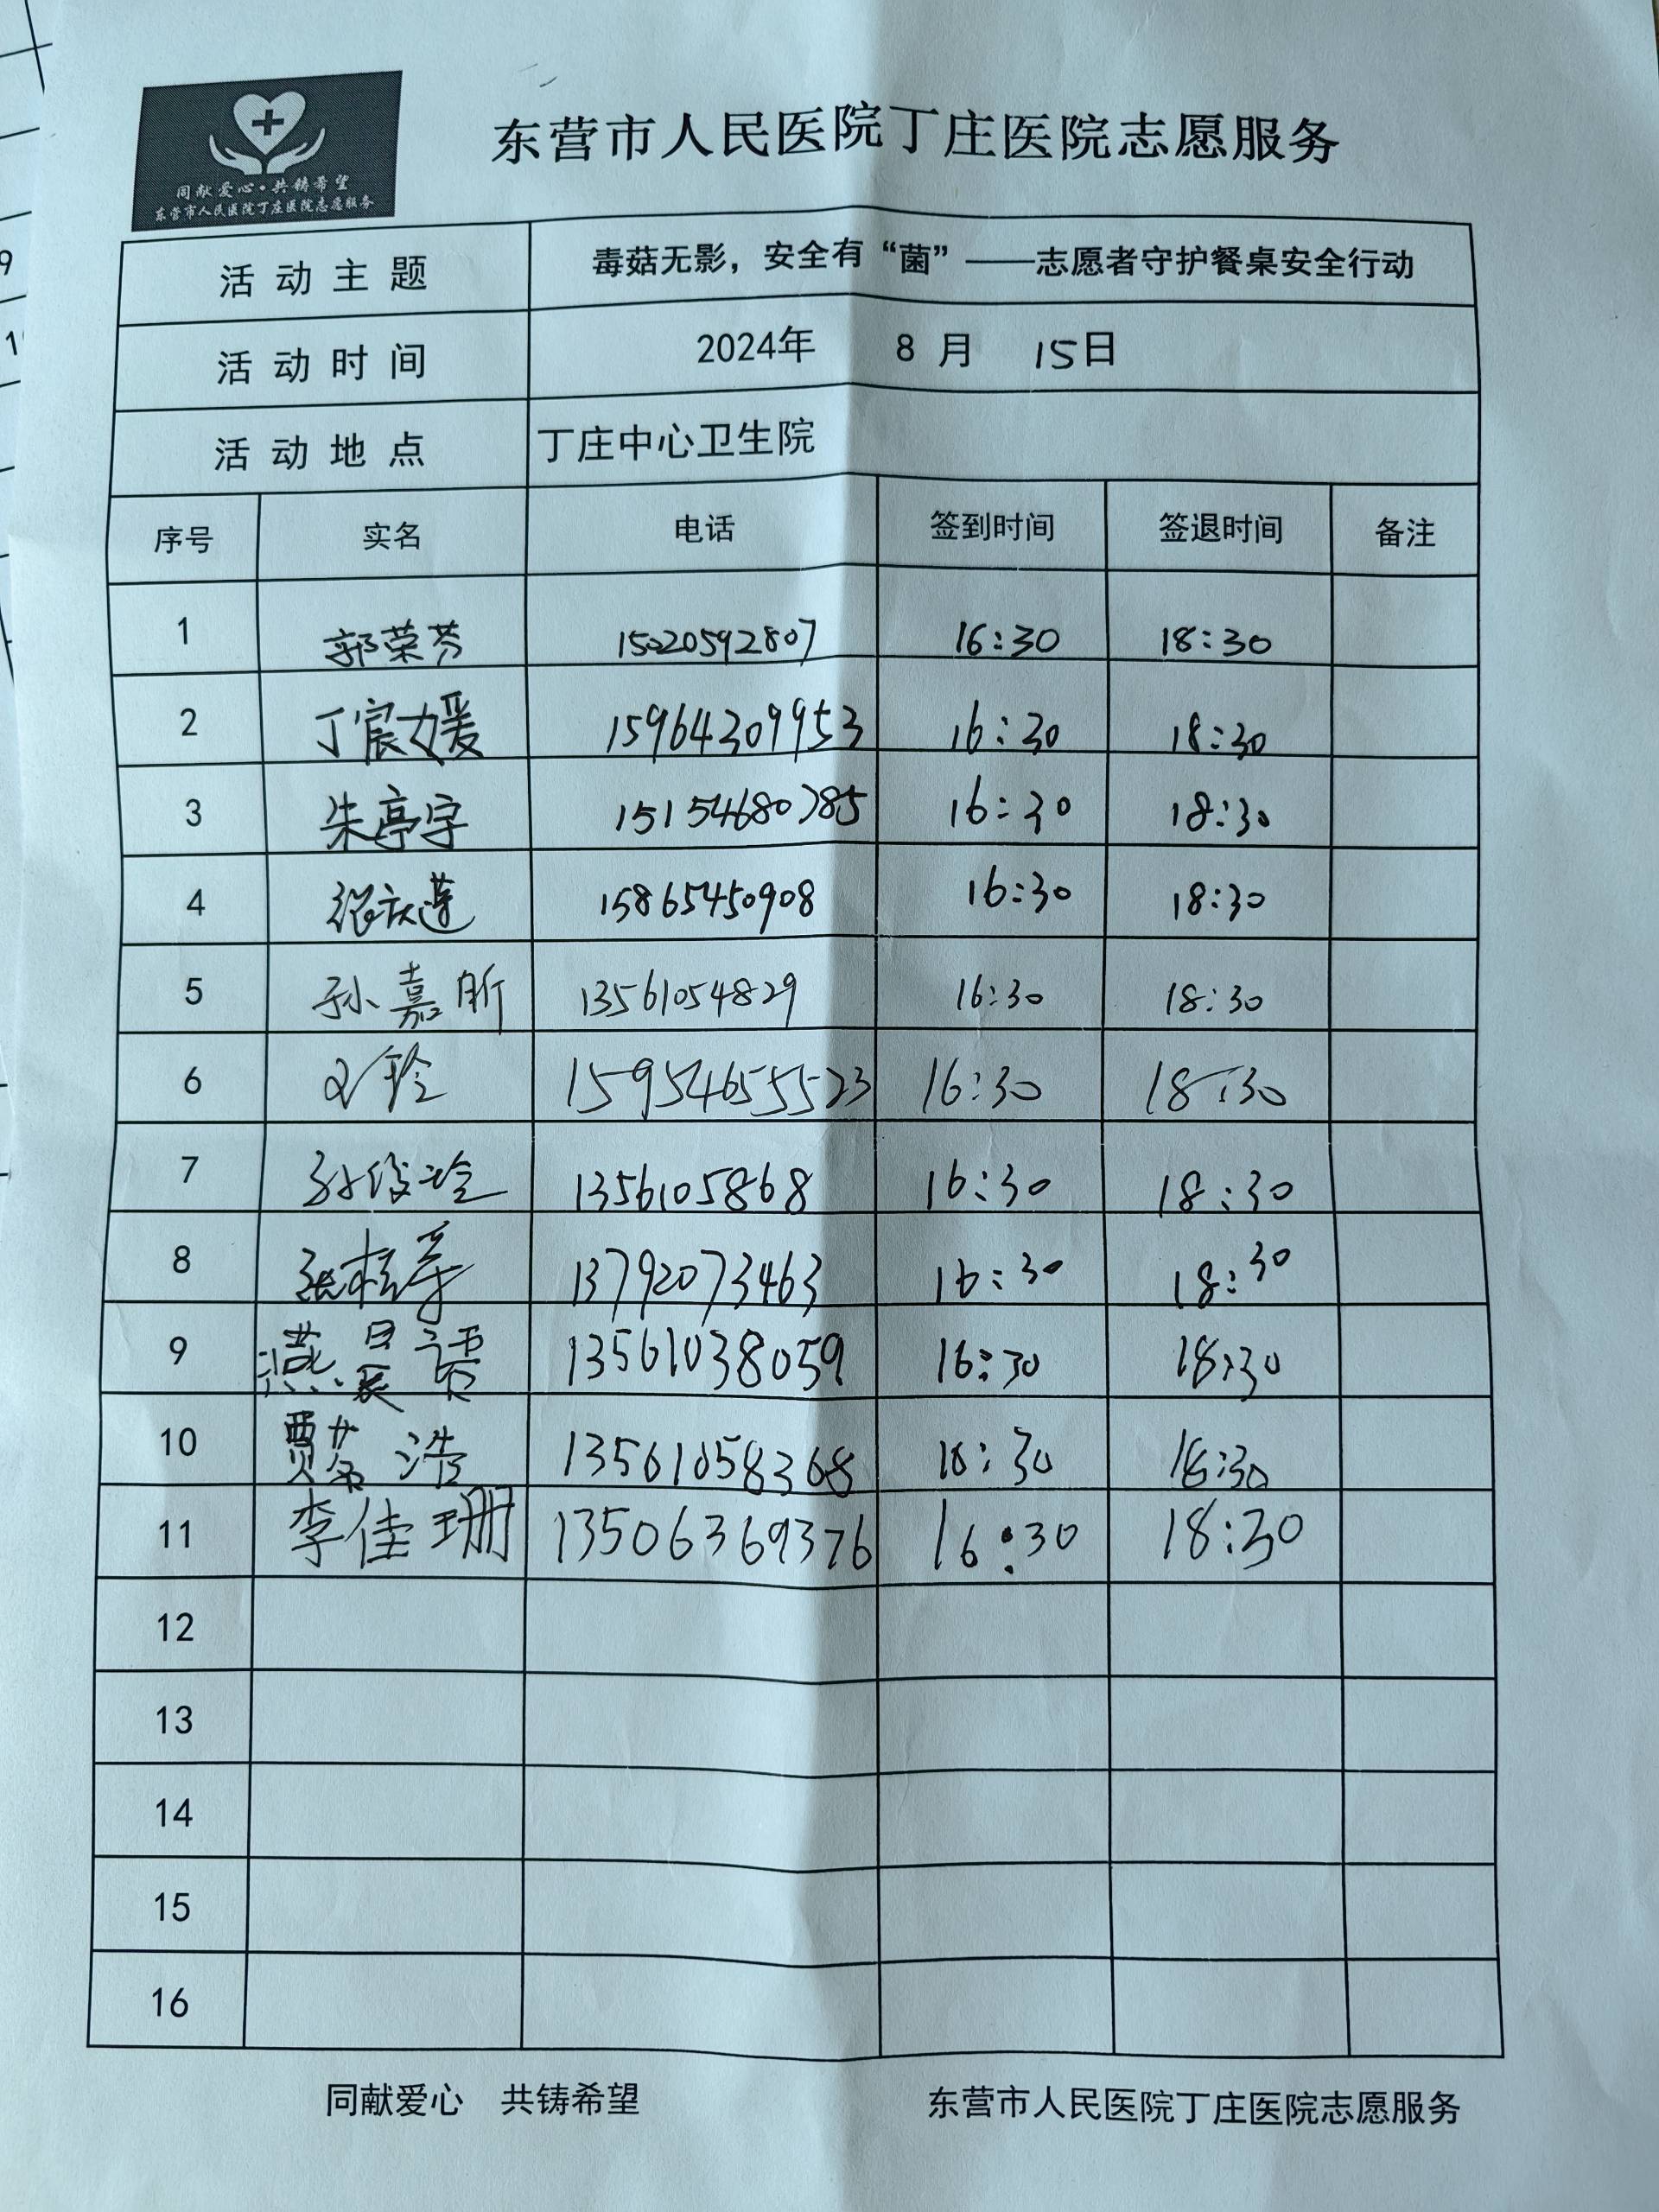 同献爱心·共铸希望
东营市人民医院丁庄医院志愿服务
东营市人民医院丁庄医院志愿服务
活动主题 毒菇无影，安全有“菌”——志愿者守护餐桌安全行动
活动时间 2024年 8月 15日
活动地点 丁庄中心卫生院
序号 实名 电话 签到时间 签退时间 备注
1 郭荣芬 15020592807 16:30 18:30
2 丁宸媛 15964309953 16:30 18:30
3 朱亭宇 15154680785 16:30 18:30
4 15865450908 16:30 18:30
5 孙嘉昕 13561054829 16:30 18:30
6 15954655523 16:30 18:30
7 1356105868 16:30 18:30
8 13792073463 16:30 18:30
9 13561038059 16:30 18:30
10 贾 浩 13561058368 16:30 18:30
11 李佳珊 13506369376 16:30 18:30
12
13
14
15
16
同献爱心 共铸希望 东营市人民医院丁庄医院志愿服务